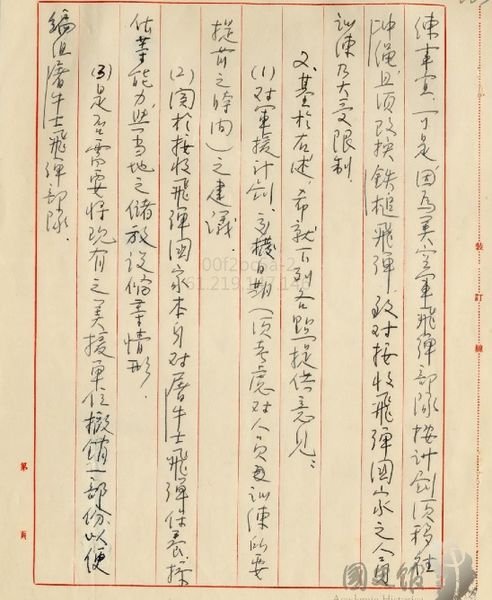 練事宜，於是，因為美空軍飛彈部隊按計劃須移駐
沖繩，且須改換鉄槌飛彈，致对接收飛彈國家之人員
訓練乃大受限制.
2.基於右述，希就下列各點提供意見：
(1)对軍援計劃交機日期(須考慮对人員訓練所要
提前之時间)之建議.
(2)関於接收飛彈國家本身对屠牛士飛彈保養操
作等能力與當地之儲放設備等情形.
(3)是否需要將现有之美援單位撤銷一部份，以便
編組屠牛士飛彈部隊.
裝訂線
第 頁
國史館
Academia Historica